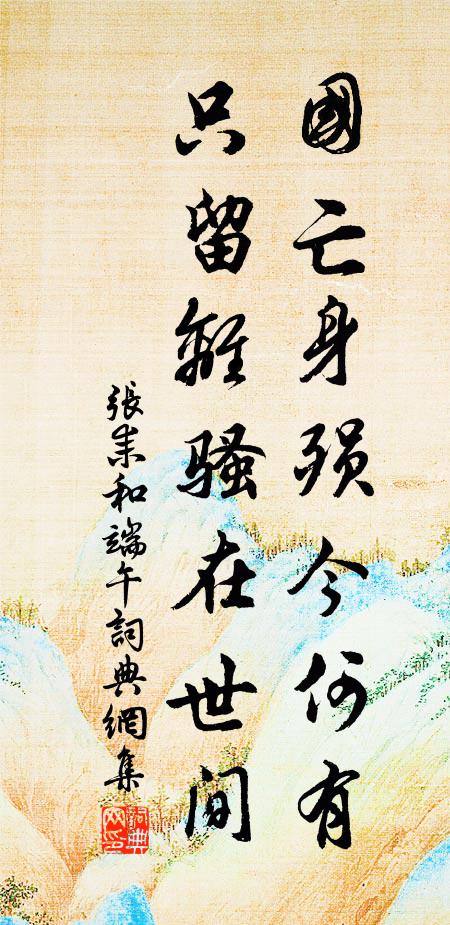 國亡身殞今何有
只留離騷在世間
張耒和端午詞典網集
詞典
网印